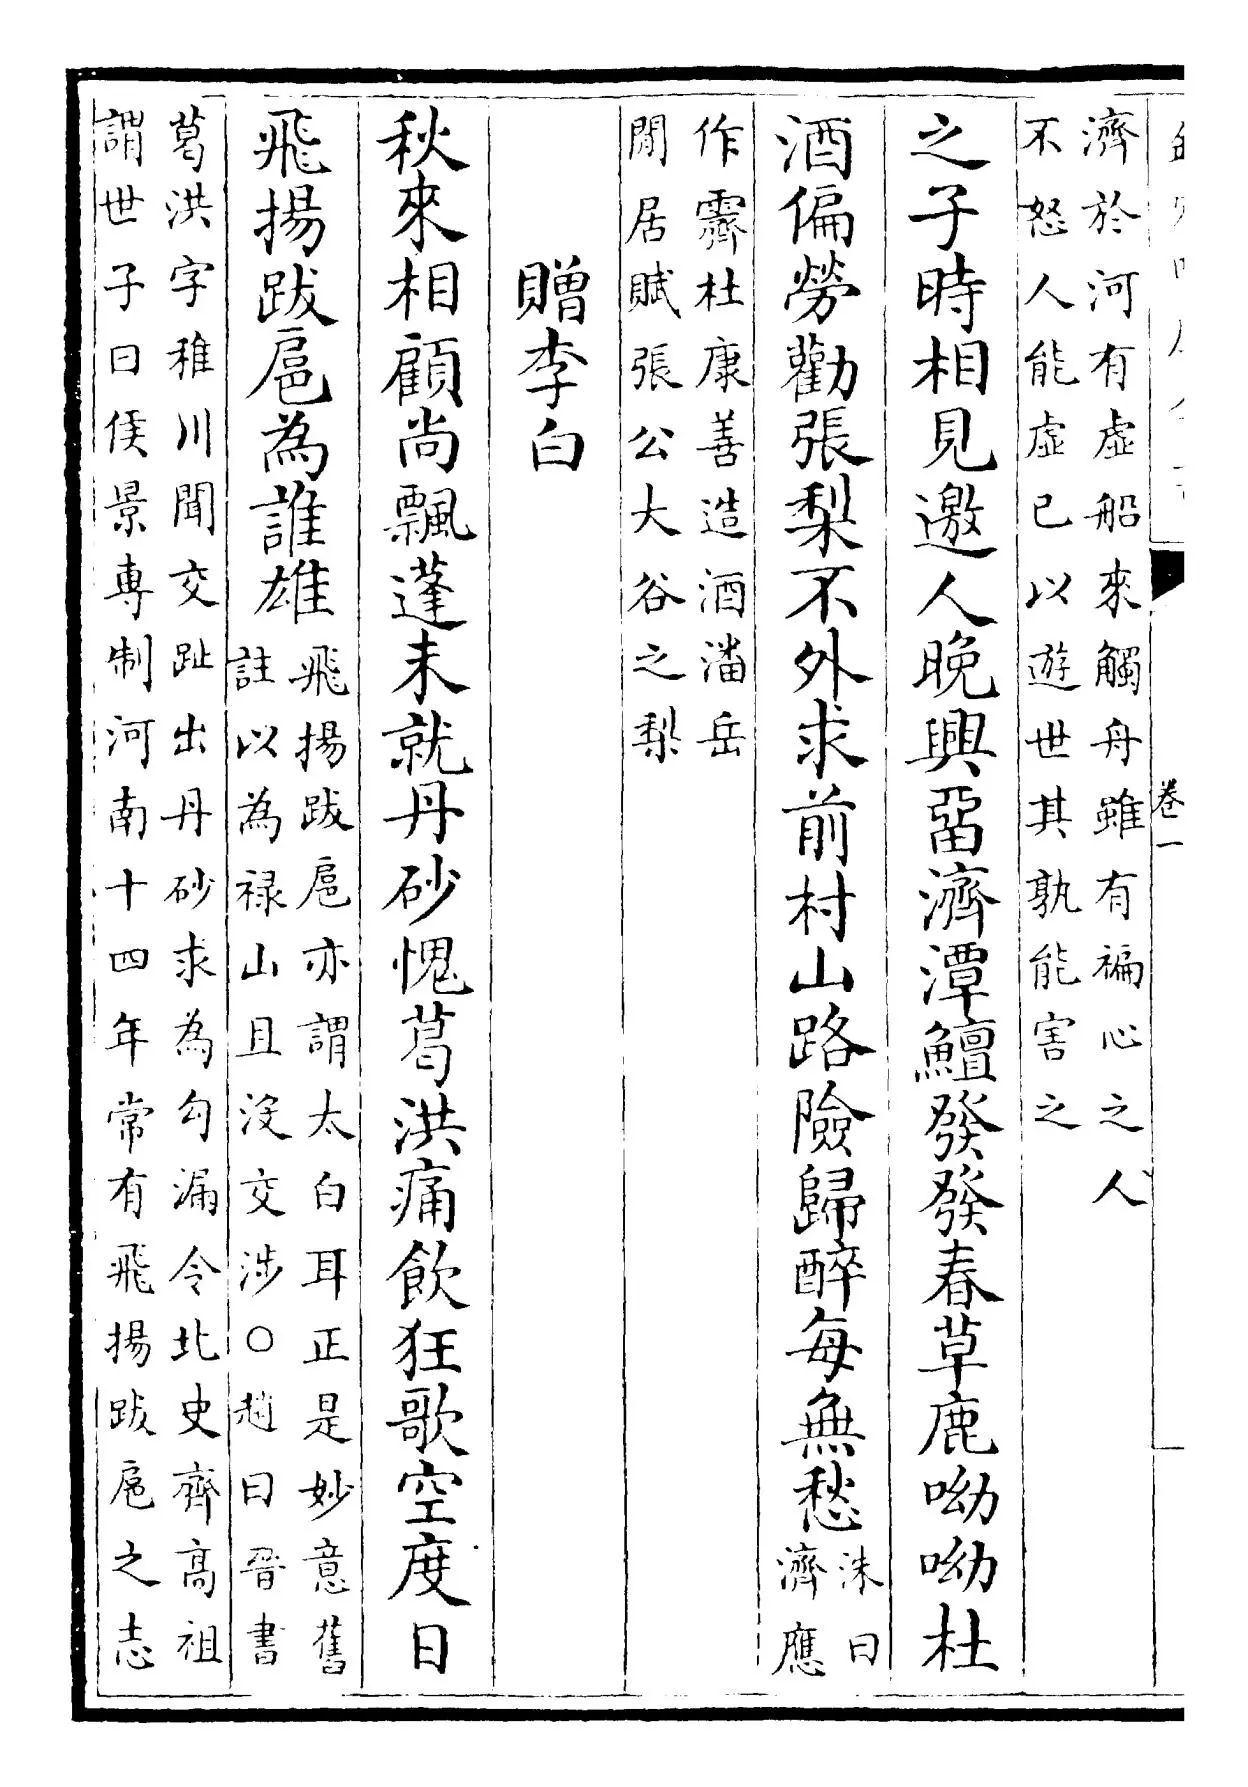 卷一
濟於河有虛船來觸舟雖有褊心之人
不怒人能虛已以遊世其孰能害之
之子時相見邀人晚興畱濟潭鱣發發春草鹿呦呦杜
酒偏勞勸張梨不外求前村山路險歸醉每無愁
洙曰
濟應
作霽杜康善造酒潘岳
閒居賦張公大谷之梨
贈李白
秋來相顧尚飄蓬未就丹砂愧葛洪痛飲狂歌空度日
飛揚跋扈為誰雄
飛揚跋扈亦謂太白耳正是妙意舊
註以為禄山且沒交涉○趙曰晉書
葛洪字稚川聞交趾出丹砂求為勾漏令北史齊高祖
謂世子曰侯景專制河南十四年常有飛揚跋扈之志